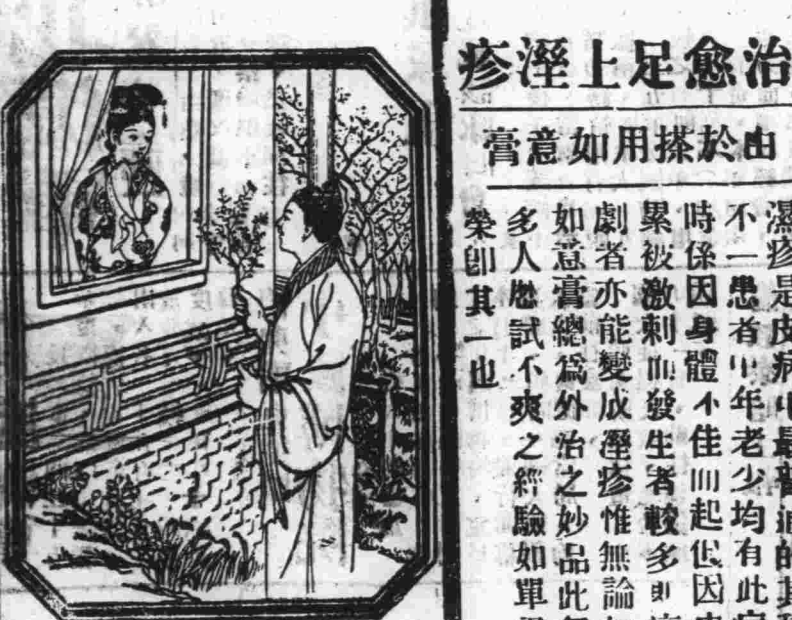 治愈足上溼疹
由於搽用如意膏
濕疹是皮病中最普通的其
不一患者中年老少均有此
時係因身體不佳而起但因
累被激刺而發生者較多則
劇者亦能變成溼疹惟無論
如意膏總爲外治之妙品此
多人歷試不爽之經驗如單
榮卽其一也